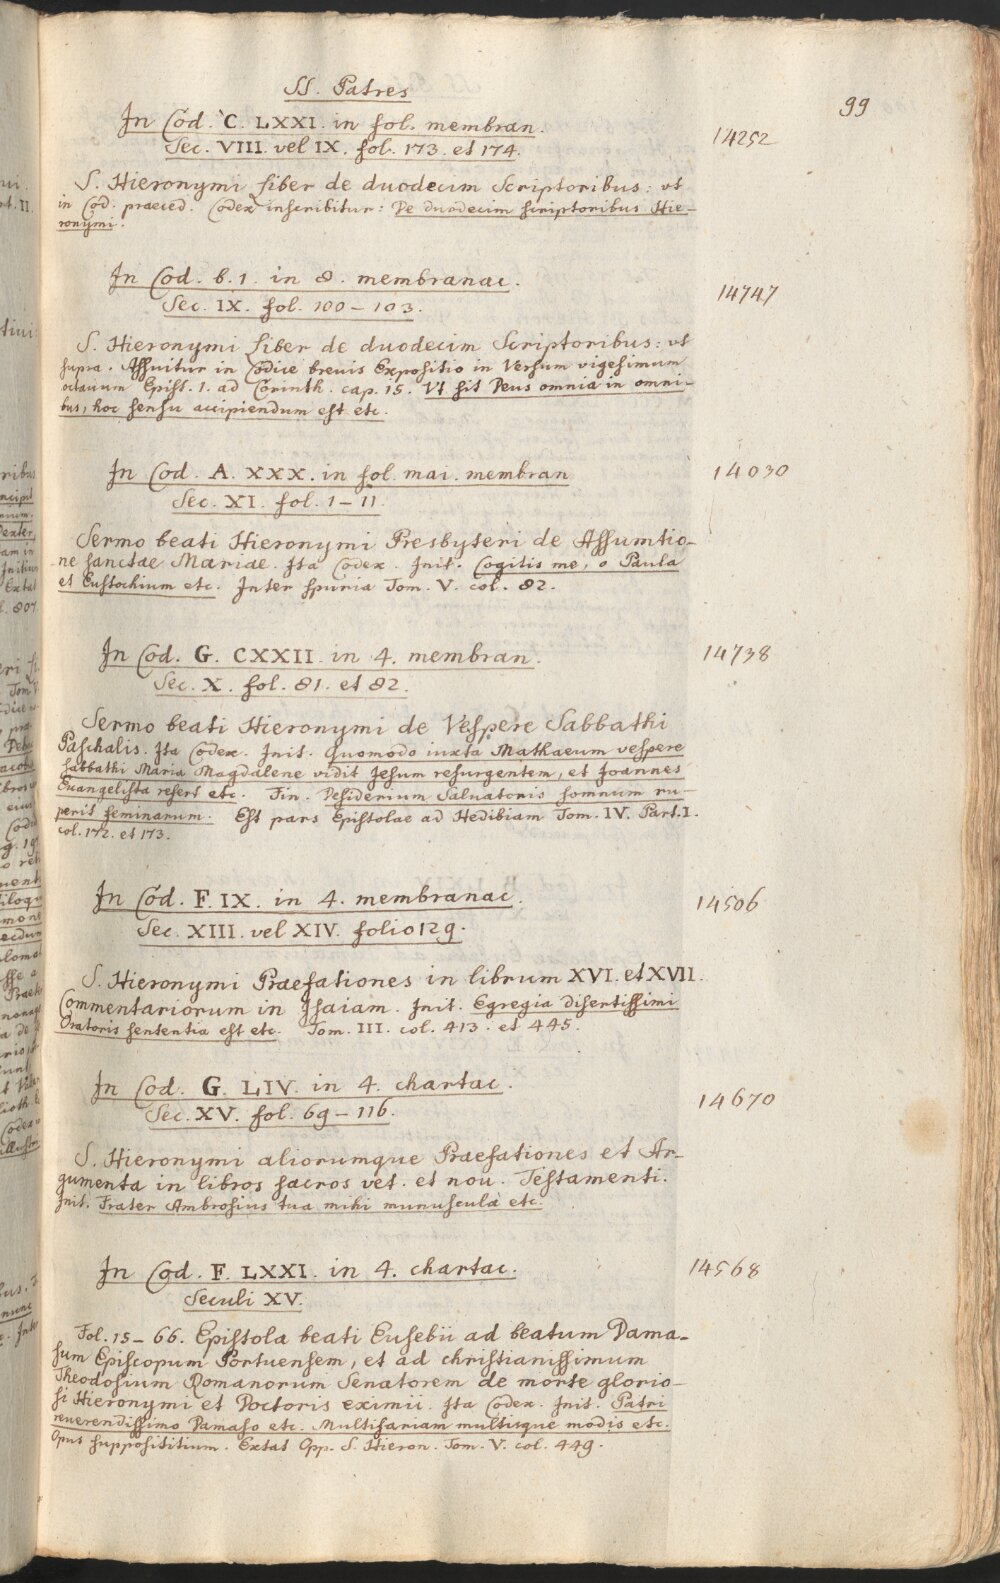 SS. Patres
99
In Cod. C. LXXI. in fol. membran.
14252
Sec. VIII vel IX. fol. 173. et 174.
S. Hieronymi liber de duodecim Scriptoribus: vt
in Cod. praeced. Codex inscribitur: De duodecim scriptoribus Hie-
ronymi.
In Cod. b. 1. in 8. membranac.
14747
Sec. IX. fol. 100 – 103.
S. Hieronymi liber de duodecim Scriptoribus: vt
supra. Assuitur in Codice breuis Expositio in Versum vigesimum
octauum Epist. 1. ad Corinth. cap. 15. Vt sit Deus omnia in omni-
bus, hoc sensu accipiendum est etc.
In Cod. A. XXX. in fol. mai. membran
14030
Sec. XI. fol. 1 – 11.
Sermo beati Hieronymi Presbyteri de Assumtio-
ne sanctae Mariae. Ita Codex. Init. Cogitis me, o Paula
et Eustochium etc. Inter spuria Tom. V. col. 82.
In Cod. G. CXXII. in 4. membran.
14738
Sec. X. fol. 81. et 82.
Sermo beati Hieronymi de Vespere Sabbathi
Paschalis. Ita Codex. Init. Quomodo iuxta Mathaeum vespere
sabbathi Maria Magdalene vidit Jesum resurgentem, et Joannes
Euangelista refert etc. Fin. Desiderium Saluatoris somnum ru-
perit feminarum. Est pars Epistolae ad Hedibiam Tom. IV. Part. I.
col. 172. et 173.
In Cod. F. IX. in 4. membranac.
14506
Sec. XIII. vel XIV. folio 129.
S. Hieronymi Praefationes in librum XVI. et XVII.
Commentariorum in Isaiam. Init. Egregia disertissimi
Oratoris sententia est etc. Tom. III. col. 413. et 445.
In Cod. G. LIV. in 4. chartac.
14670
Sec. XV. fol. 69 – 116.
S. Hieronymi aliorumque Praefationes et Ar-
gumenta in libros sacros vet. et nou. Testamenti.
Init. Frater Ambrosius tua mihi munuscula etc.
In Cod. F. LXXI. in 4. chartac.
14568
Seculi XV.
Fol. 15 – 66. Epistola beati Eusebii ad beatum Dama-
sum Episcopum Portuensem, et ad christianissimum
Theodosium Romanorum Senatorem de morte glorio-
si Hieronymi et Doctoris eximii. Ita Codex. Init. Patri
reuerendissimo Damaso etc. Multifariam multisque modis etc.
Opus supposititium. Extat Opp. S. Hieron. Tom. V. col. 449.